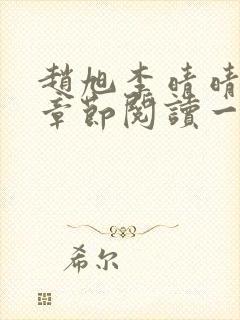 趙旭李晴晴
章節閱讀一
希尔